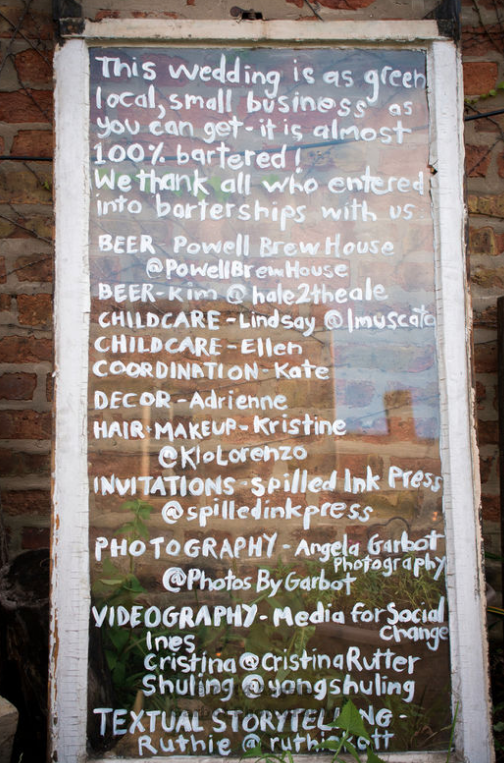 This wedding is as green
local, small business as
you can get - it is almost
100% bartered!
We thank all who entered
into barterships with us
BEER - Powell Brew House
@PowellBrewHouse
BEER - Kim @hale2theale
CHILDCARE - Lindsay @lmuscato
CHILDCARE - Ellen
COORDINATION - Kate
DECOR - Adrienne
HAIR + MAKEUP - Kristine
@KloLorenzo
INVITATIONS - Spilled Ink Press
@spilledinkpress
PHOTOGRAPHY - Angela Garbot
Photography
@Photos By Garbot
VIDEOGRAPHY - Media for Social
Change
Ines
Cristina @CristinaRutter
Shuling @yongshuling
TEXTUAL STORYTELLING -
Ruthie @